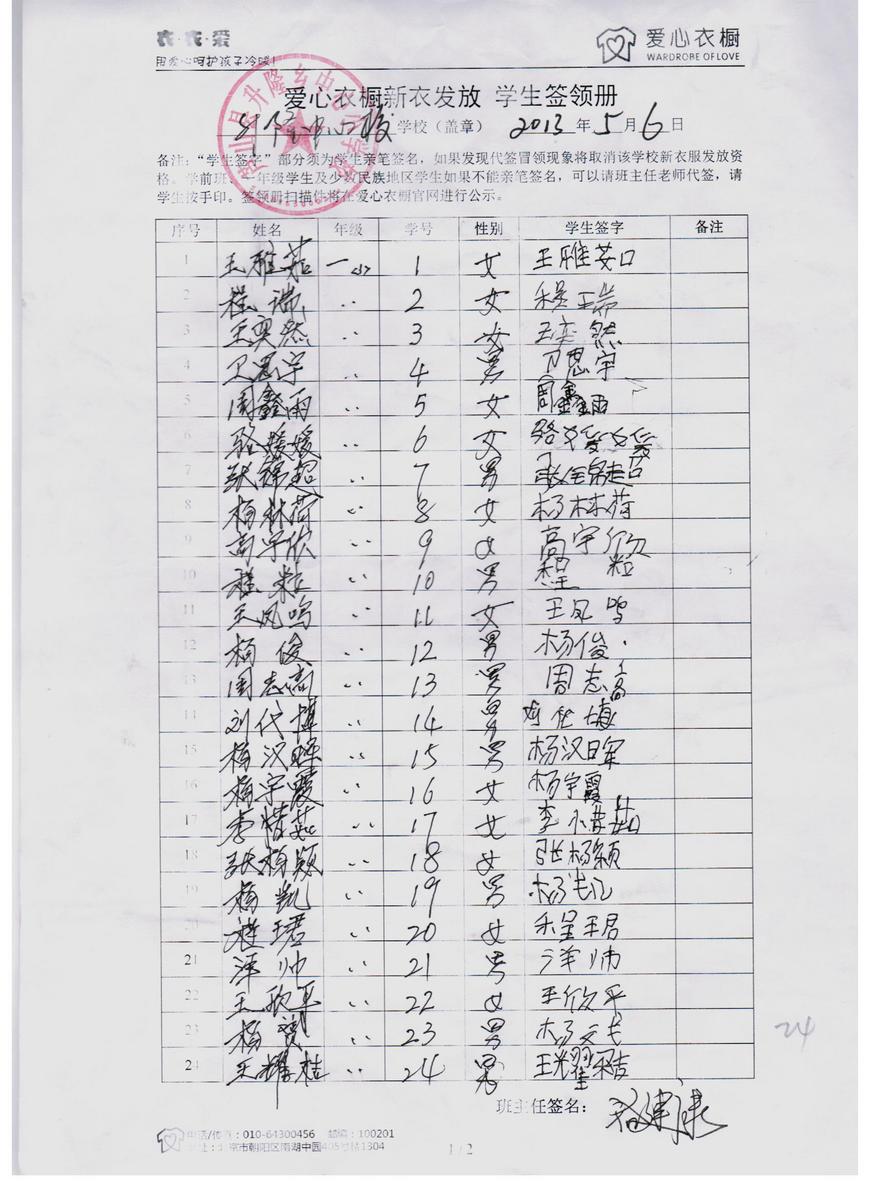 衣·衣·爱
用爱心呵护孩子冷暖!
爱心衣橱
WARDROBE OF LOVE
爱心衣橱新衣发放 学生签领册
升隆中心校 学校（盖章） 2013 年 5 月 6 日
备注：“学生签字”部分须为学生亲笔签名，如果发现代签冒领现象将取消该学校新衣服发放资
格。学前班、一年级学生及少数民族地区学生如果不能亲笔签名，可以请班主任老师代签，请
学生按手印。签领册扫描件将在爱心衣橱官网进行公示。
序号 姓名 年级 学号 性别 学生签字 备注
1 王雅茹 一 1 女 王雅茹
2 程瑞 .. 2 女 程瑞
3 王奕然 .. 3 女 王奕然
4 卫思宇 .. 4 男 卫思宇
5 周鑫雨 .. 5 女 周鑫雨
6 骆媛媛 .. 6 女 骆媛媛
7 张锦超 .. 7 男 张锦超
8 杨林荷 .. 8 女 杨林荷
9 高宇欣 .. 9 女 高宇欣
10 程粒 .. 10 男 程粒
11 王凤鸣 .. 11 女 王凤鸣
12 杨俊 .. 12 男 杨俊
13 周志高 .. 13 男 周志高
14 刘代博 .. 14 男
15 杨汉晖 .. 15 男 杨汉晖
16 杨宇霞 .. 16 女 杨宇霞
17 李惜茹 .. 17 女 李惜茹
18 张杨颖 .. 18 女 张杨颖
19 杨凯 .. 19 男 杨凯
20 程珺 .. 20 女 程珺
21 泽帅 .. 21 男
22 王欣平 .. 22 女 王欣平
23 杨赟 .. 23 男
24 王耀桔 .. 24 男 王耀桔
24
班主任签名：
电话/传真：010-64300456 邮编：100201
地址：北京市朝阳区南湖中园405号楼1304
1 / 2